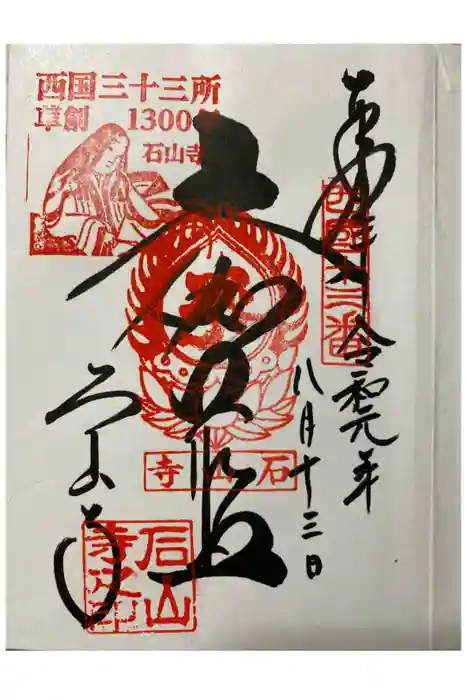 西国三十三所
草創 1300年
石山寺
奉拝
西国十三番
令和元年
八月十三日
大伽藍
石山寺
石山寺
石山
寺之印